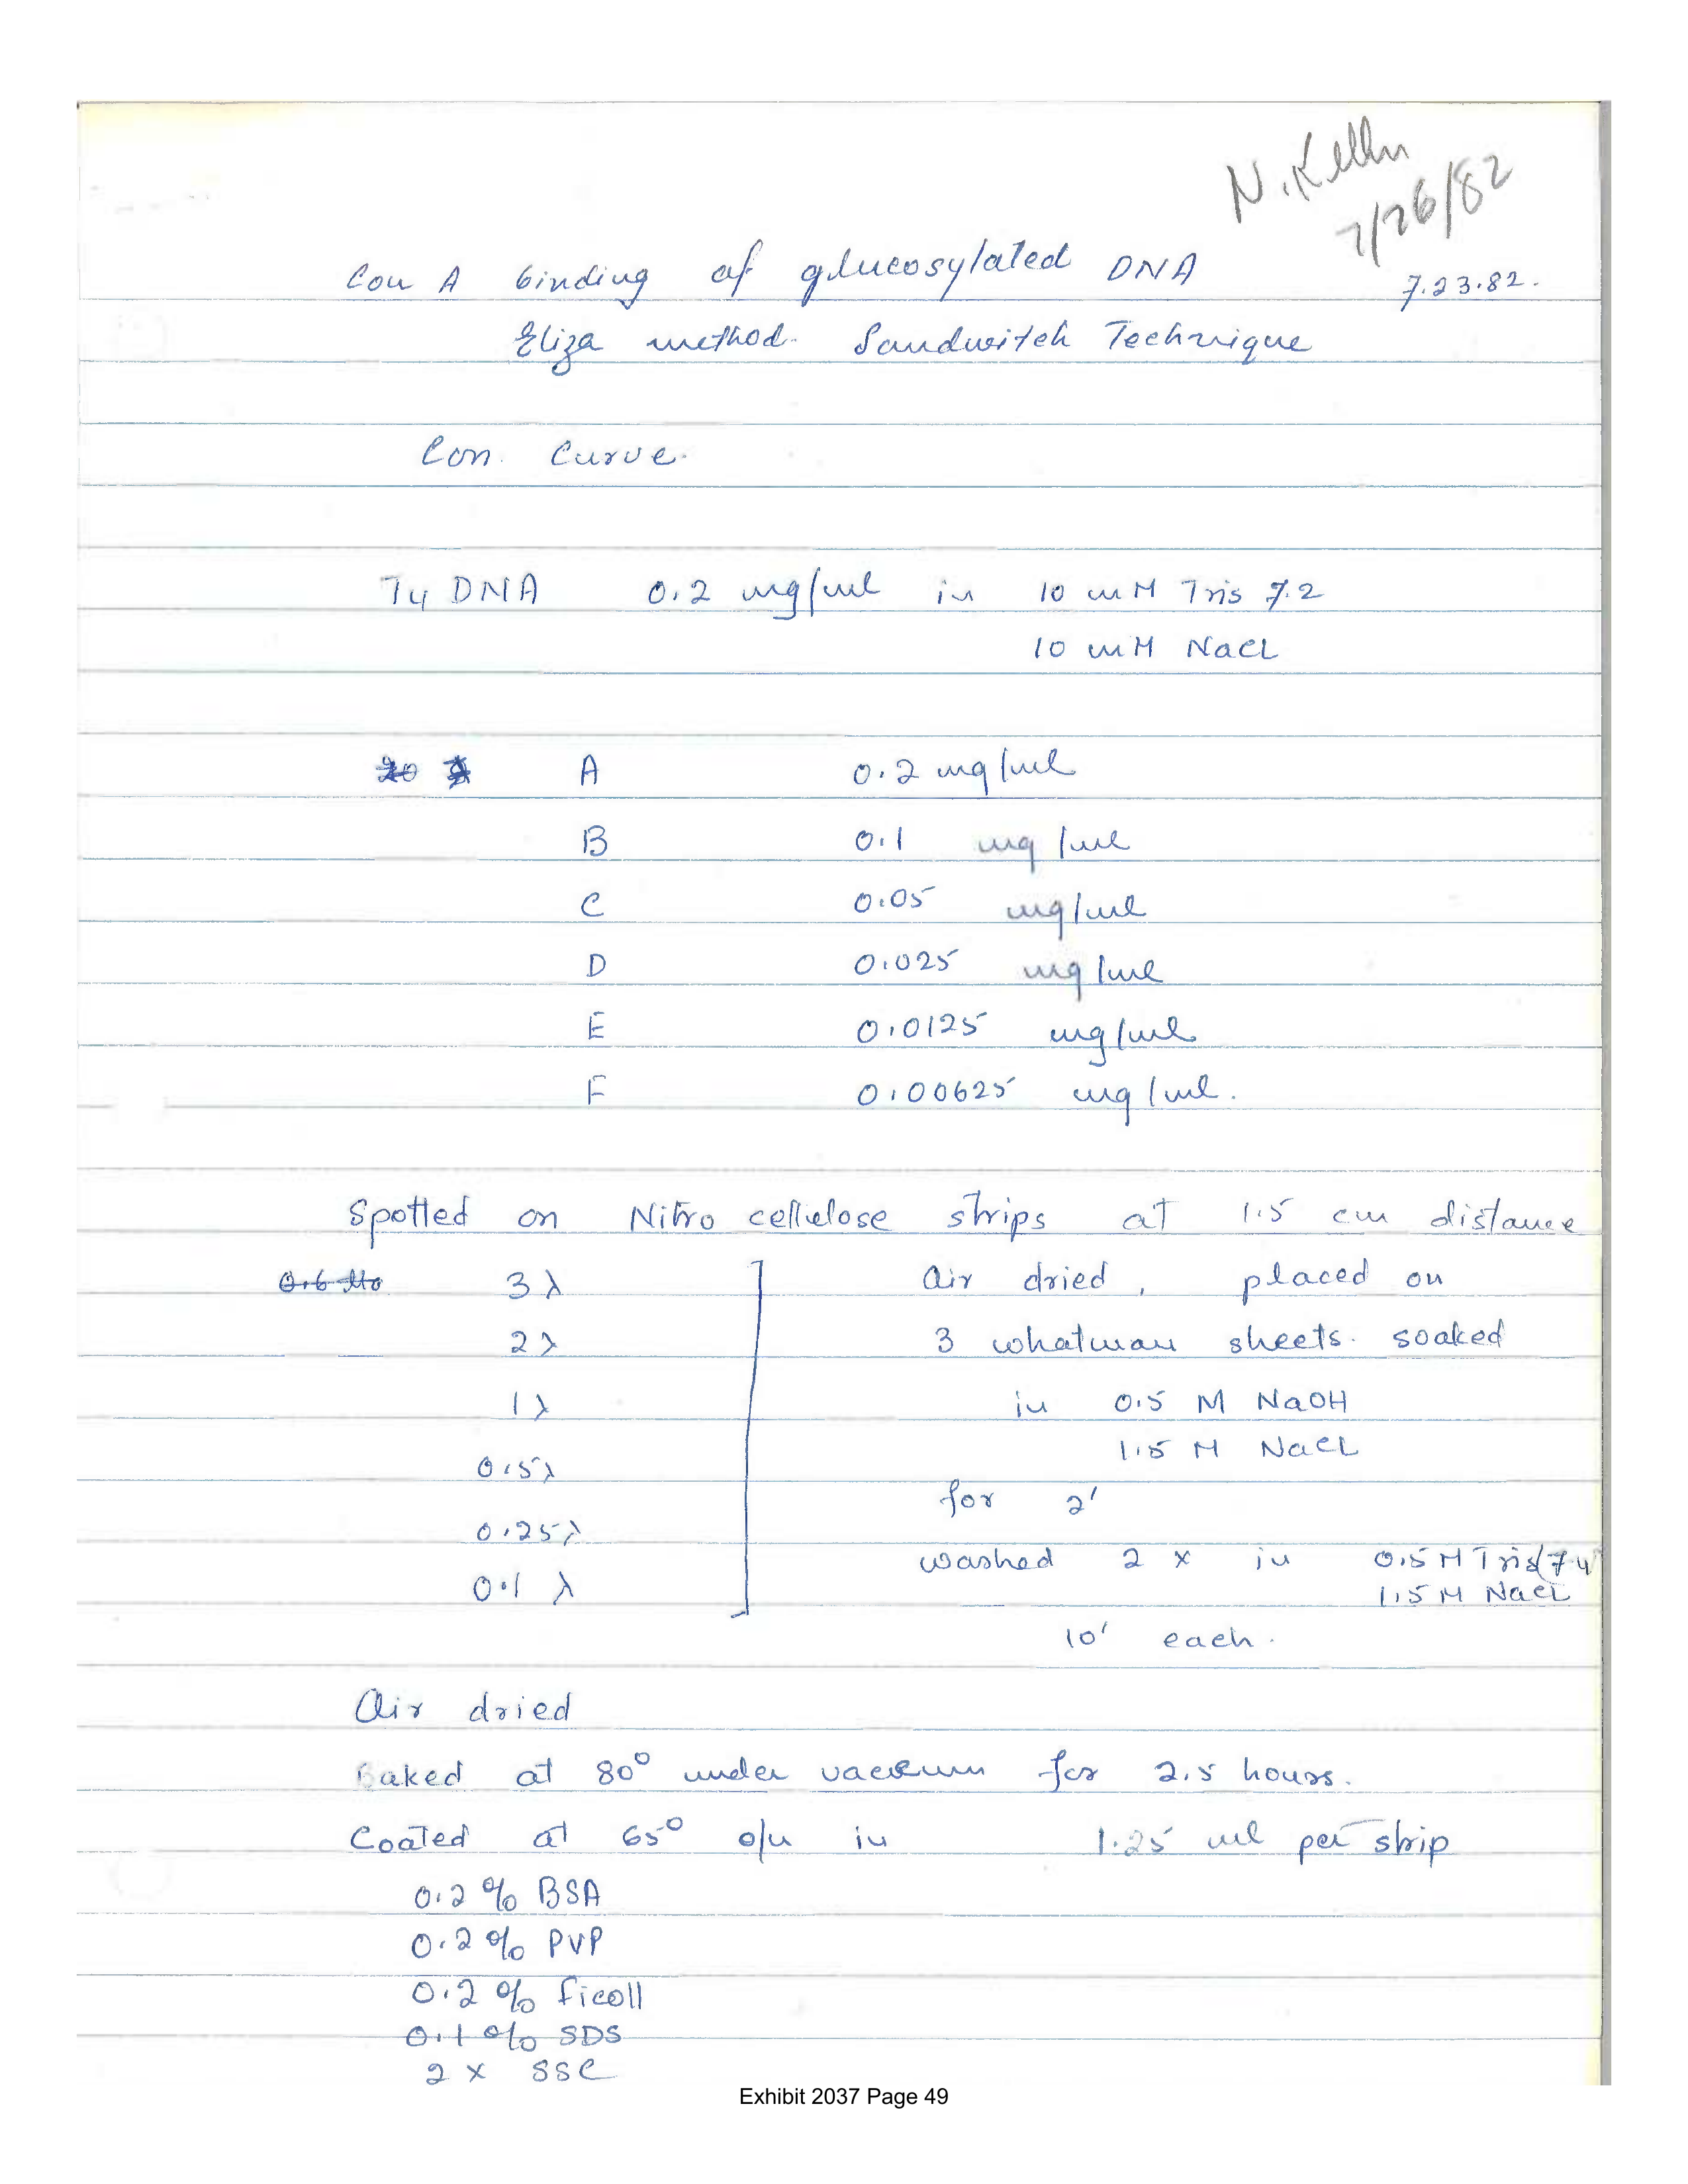 N. Kelln
7/26/82
Con A binding of glucosylated DNA 7.23.82.
Eliza method. Sandwitch Technique
Con. Curve.
T4 DNA 0.2 mg/ml in 10 mM Tris 7.2
10 mM NaCl
20 A 0.2 mg/ml
B 0.1 mg/ml
C 0.05 mg/ml
D 0.025 mg/ml
E 0.0125 mg/ml
F 0.00625 mg/ml.
Spotted on Nitro cellulose strips at 1.5 cm distance
3 λ Air dried, placed on
2 λ 3 whatman sheets. soaked
1 λ in 0.5 M NaOH
1.5 M NaCl
0.5 λ
for 2'
0.25 λ
washed 2 x in 0.5 M Tris 7.4
0.1 λ 1.5 M NaCl
10' each.
Air dried
Baked at 80° under vacuum for 2.5 hours.
Coated at 65° o/n in 1.25 ml per strip
0.2 % BSA
0.2 % PVP
0.2 % ficoll
0.1 % SDS
2 x SSC
Exhibit 2037 Page 49